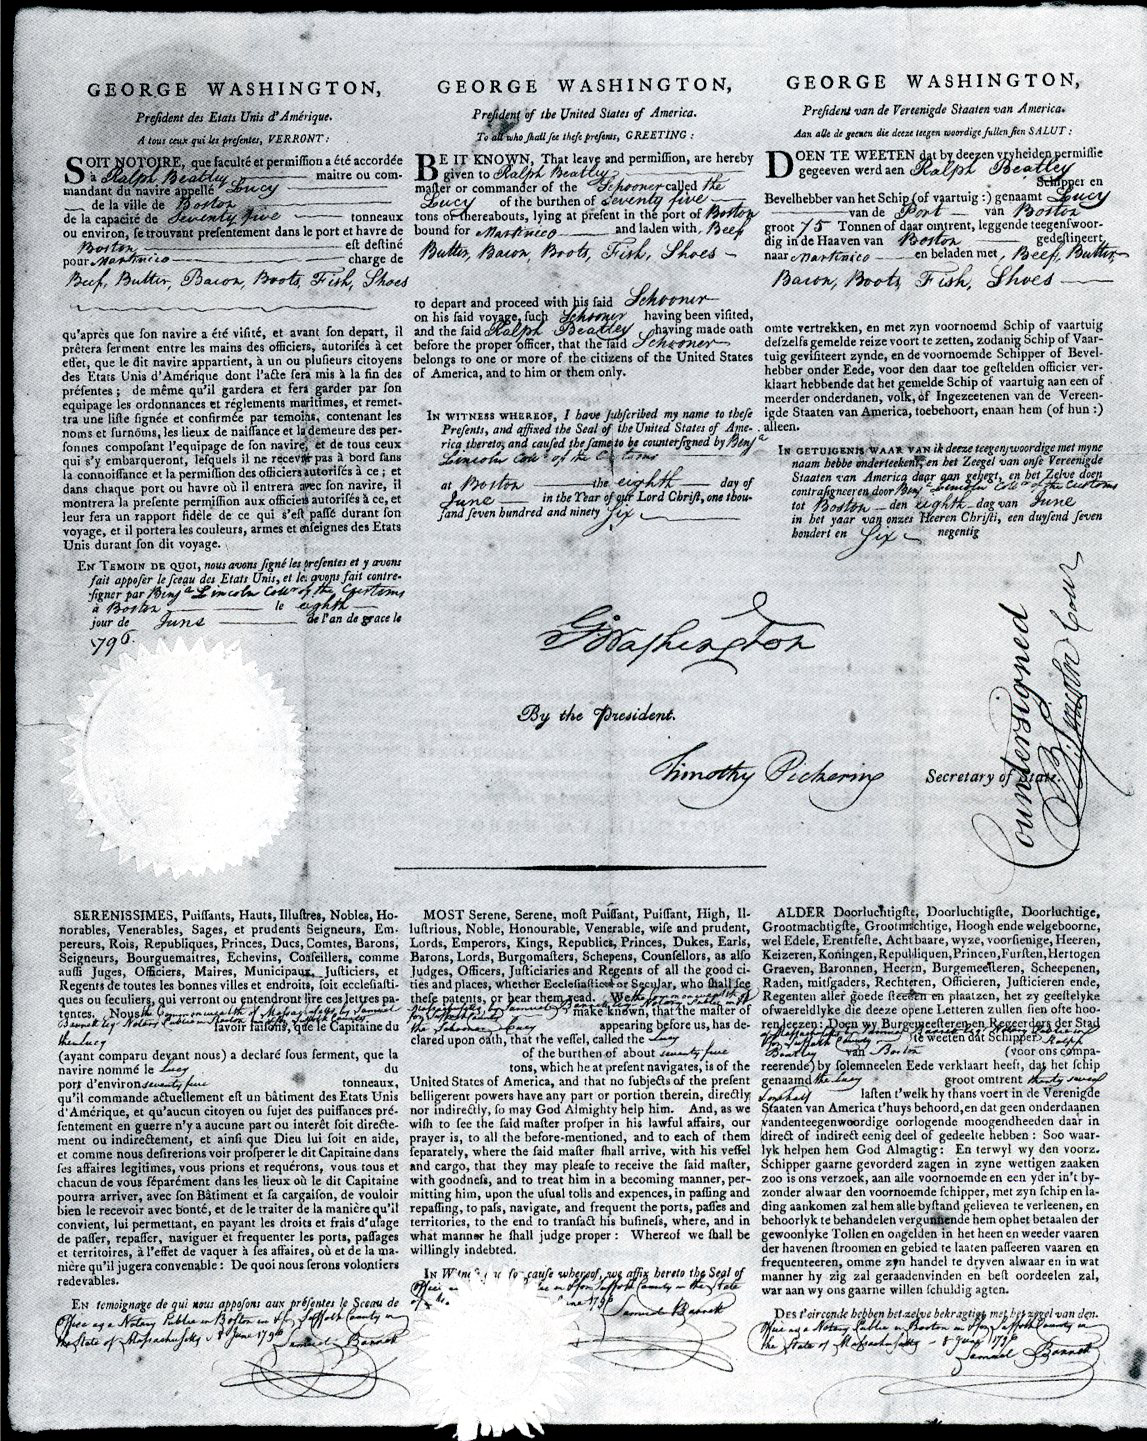 GEORGE WASHINGTON,
Preſident des Etats Unis d'Amérique.
A tous ceux qui les preſentes, VERRONT:
SOIT NOTOIRE, que faculté et permiſſion a été accordée
à Ralph Beatley maitre ou com-
mandant du navire appellé Lucy
de la ville de Boston
de la capacité de Seventy five tonneaux
ou environ, ſe trouvant preſentement dans le port et havre de
Boston eſt deſtiné
pour Martinico charge de
Beef, Butter, Bacon, Boots, Fish, Shoes
qu'après que ſon navire a été viſité, et avant ſon depart, il
prêtera ſerment entre les mains des officiers, autoriſés à cet
effet, que le dit navire appartient, à un ou pluſieurs citoyens
des Etats Unis d'Amérique dont l'acte ſera mis à la fin des
préſentes; de même qu'il gardera et fera garder par ſon
equipage les ordonnances et réglements maritimes, et remet-
tra une liſte ſignée et confirmée par temoins, contenant les
noms et ſurnoms, les lieux de naiſſance et la demeure des per-
ſonnes compoſant l'equipage de ſon navire, et de tous ceux
qui s'y embarqueront, leſquels il ne recevra pas à bord sans
la connoiſſance et la permiſſion des officiers autoriſés à ce; et
dans chaque port ou havre où il entrera avec ſon navire, il
montrera la preſente permiſſion aux officiers autoriſés à ce, et
leur fera un rapport fidèle de ce qui s'eſt paſſé durant ſon
voyage, et il portera les couleurs, armes et enſeignes des Etats
Unis durant ſon dit voyage.
EN TEMOIN DE QUOI, nous avons ſigné les preſentes et y avons
fait appoſer le ſceau des Etats Unis, et les avons fait contre-
ſigner par Benja Lincoln Colr of the Customs
à Boston le eighth
jour de June de l'an de grace le
1796.
GEORGE WASHINGTON,
Preſident of the United States of America.
To all who ſhall ſee theſe preſents, GREETING:
BE IT KNOWN, That leave and permiſſion, are hereby
given to Ralph Beatley
maſter or commander of the Schooner called the
Lucy of the burthen of seventy five
tons or thereabouts, lying at preſent in the port of Boston
bound for Martinico and laden with Beef
Butter, Bacon, Boots, Fish, Shoes
to depart and proceed with his ſaid Schooner
on his ſaid voyage, ſuch Schooner having been viſited,
and the ſaid Ralph Beatley having made oath
before the proper officer, that the ſaid Schooner
belongs to one or more of the citizens of the United States
of America, and to him or them only.
IN WITNESS WHEREOF, I have ſubſcribed my name to theſe
Preſents, and affixed the Seal of the United States of Ame-
rica thereto, and cauſed the ſame to be counterſigned by Benja
Lincoln Colr of the Customs
at Boston the eighth day of
June in the Year of our Lord Chriſt, one thou-
ſand ſeven hundred and ninety Six
GEORGE WASHINGTON,
Preſident van de Vereenigde Staaten van America.
Aan alle de geenen die deeze teegen woordige ſullen ſien SALUT:
DOEN TE WEETEN dat by deezen vryheiden permiſſie
gegeeven werd aen Ralph Beatley
Schipper en
Bevelhebber van het Schip (of vaartuig:) genaamt Lucy
van de Port van Boston
groot 75 Tonnen of daar omtrent, leggende teegenſwoor-
dig in de Haaven van Boston gedeſtineert
naar Martinico en beladen met Beef, Butter,
Bacon, Boots, Fish, Shoes
omte vertrekken, en met zyn voornoemd Schip of vaartuig
deſzelfs gemelde reize voort te zetten, zodanig Schip of Vaar-
tuig geviſiteert zynde, en de voornoemde Schipper of Bevel-
hebber onder Eede, voor den daar toe geſtelden officier ver-
klaart hebbende dat het gemelde Schip of vaartuig aan een of
meerder onderdanen, volk, of Ingezeetenen van de Vereen-
igde Staaten van America, toebehoort, enaan hem (of hun:)
alleen.
IN GETUIGENIS WAAR VAN ik deeze teegenſwoordige met myne
naam hebbe onderteekent, en het Zeegel van onſe Vereenigde
Staaten van America daar aan gehegt, en het Zelve doen
contraſigneeren door Benja Lincoln Colr of the Customs
tot Boston den eighth dag van June
in het yaar van onzes Heeren Chriſti, een duyſend ſeven
hondert en Six negentig
G Washington
By the President.
Timothy Pickering Secretary of State.
Countersigned
B Lincoln Colr
SERENISSIMES, Puiſſants, Hauts, Illuſtres, Nobles, Ho-
norables, Venerables, Sages, et prudents Seigneurs, Em-
pereurs, Rois, Republiques, Princes, Ducs, Comtes, Barons,
Seigneurs, Bourguemaitres, Echevins, Conſeillers, comme
auſſi Juges, Officiers, Maires, Municipaux, Juſticiers, et
Regents de toutes les bonnes villes et endroits, ſoit eccleſiaſti-
ques ou ſeculiers, qui verront ou entendront lire ces lettres pa-
tentes. Nous the Commonwealth of Massachusetts by Samuel
Barrett Esq Notary Public ſavoir faiſons, que le Capitaine du
the Lucy
(ayant comparu devant nous) a declaré ſous ſerment, que la
navire nommé le Lucy du
port d'environ seventy five tonneaux,
qu'il commande actuellement eſt un bâtiment des Etats Unis
d'Amérique, et qu'aucun citoyen ou ſujet des puiſſances pré-
ſentement en guerre n'y a aucune part ou interêt ſoit directe-
ment ou indirectement, et ainſi que Dieu lui ſoit en aide,
et comme nous deſirerions voir proſperer le dit Capitaine dans
ſes affaires legitimes, vous prions et requérons, vous tous et
chacun de vous ſéparément dans les lieux où le dit Capitaine
pourra arriver, avec ſon Bâtiment et ſa cargaiſon, de vouloir
bien le recevoir avec bonté, et de le traiter de la manière qu'il
convient, lui permettant, en payant les droits et frais d'uſage
de paſſer, repaſſer, naviguer et frequenter les ports, paſſages
et territoires, à l'effet de vaquer à ſes affaires, où et de la ma-
nière qu'il jugera convenable: De quoi nous ſerons volontiers
redevables.
EN temoignage de qui nous appoſons aux préſentes le Sceau de
Office as a Notary Public in Boston in & for Suffolk County in
the State of Massachusetts 8 June 1796
Samuel Barrett
MOST Serene, Serene, moſt Puiſſant, Puiſſant, High, Il-
luſtrious, Noble, Honourable, Venerable, wiſe and prudent,
Lords, Emperors, Kings, Republics, Princes, Dukes, Earls,
Barons, Lords, Burgomaſters, Schepens, Counſellors, as alſo
Judges, Officers, Juſticiaries and Regents of all the good ci-
ties and places, whether Eccleſiaſtical or Secular, who ſhall ſee
theſe patents, or hear them read. We the Commonwealth of
Massachusetts by Samuel Barrett Esq Notary Public
make known, that the maſter of
the Schooner Lucy appearing before us, has de-
clared upon oath, that the veſſel, called the Lucy
of the burthen of about seventy five
tons, which he at preſent navigates, is of the
United States of America, and that no ſubjects of the preſent
belligerent powers have any part or portion therein, directly
nor indirectly, ſo may God Almighty help him. And, as we
wiſh to ſee the ſaid maſter proſper in his lawful affairs, our
prayer is, to all the before-mentioned, and to each of them
ſeparately, where the ſaid maſter ſhall arrive, with his veſſel
and cargo, that they may pleaſe to receive the ſaid maſter,
with goodneſs, and to treat him in a becoming manner, per-
mitting him, upon the uſual tolls and expences, in paſſing and
repaſſing, to paſs, navigate, and frequent the ports, paſſes and
territories, to the end to tranſact his buſineſs, where, and in
what manner he ſhall judge proper: Whereof we ſhall be
willingly indebted.
IN cauſe whereof, we affix hereto the Seal of
Office in & for Suffolk County in the State
of June 1796
Samuel Barrett
ALDER Doorluchtigſte, Doorluchtigſte, Doorluchtige,
Grootmachtigſte, Grootmachtige, Hoogh ende welgeboorne,
wel Edele, Erentfeſte, Achtbaare, wyze, voorſienige, Heeren,
Keizeren, Koningen, Republiquen, Princen, Furſten, Hertogen
Graeven, Baronnen, Heeren, Burgemeeſteren, Scheepenen,
Raden, mitſgaders, Rechteren, Officieren, Juſticieren ende,
Regenten aller goede ſteeden en plaatzen, het zy geeſtelyke
ofwaereldlyke die deeze opene Letteren zullen ſien ofte hoo-
renleezen: Doen wy Burgemeeſteren en Regeerders der Stad
of Massachusetts by Samuel Barrett Esq Notary Public in
for Suffolk County te weeten dat Schipper Ralph
Beatley van Boston (voor ons compa-
reerende) by ſolemneelen Eede verklaart heeft, dat het ſchip
genaamd the Lucy groot omtrent thirty seven
& one half laſten t'welk hy thans voert in de Verenigde
Staaten van America t'huys behoord, en dat geen onderdaanen
vandenteegenwoordige oorlogende moogendheeden daar in
direct of indirect eenig deel of gedeelte hebben: Soo waar-
lyk helpen hem God Almagtig: En terwyl wy den voorz.
Schipper gaarne gevorderd zagen in zyne wettigen zaaken
zoo is ons verzoek, aan alle voornoemde en een yder in't by-
zonder alwaar den voornoemde ſchipper, met zyn ſchip en la-
ding aankomen zal hem alle byſtand gelieven te verleenen, en
behoorlyk te behandelen vergunnende hem ophet betaalen der
gewoonlyke Tollen en ongelden in het heen en weeder vaaren
der havenen ſtroomen en gebied te laaten paſſeeren vaaren en
frequenteeren, omme zyn handel te dryven alwaar en in wat
manner hy zig zal geraadenvinden en beſt oordeelen zal,
war aan wy ons gaarne willen ſchuldig agten.
DES t'oirconde hebben het zelve bekragtigt met het zegel van den.
Office as a Notary Public in Boston in & for Suffolk County in
the State of Massachusetts 8 June 1796
Samuel Barrett